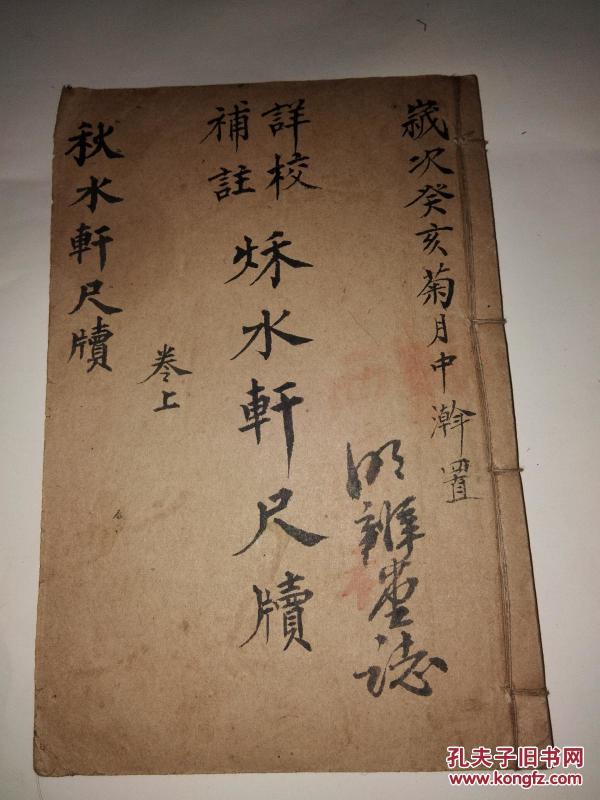 歲次癸亥菊月中澣置
明辨堂誌
詳校
補註
烌水軒尺牘
卷上
秋水軒尺牘
孔夫子旧书网
www.kongfz.com